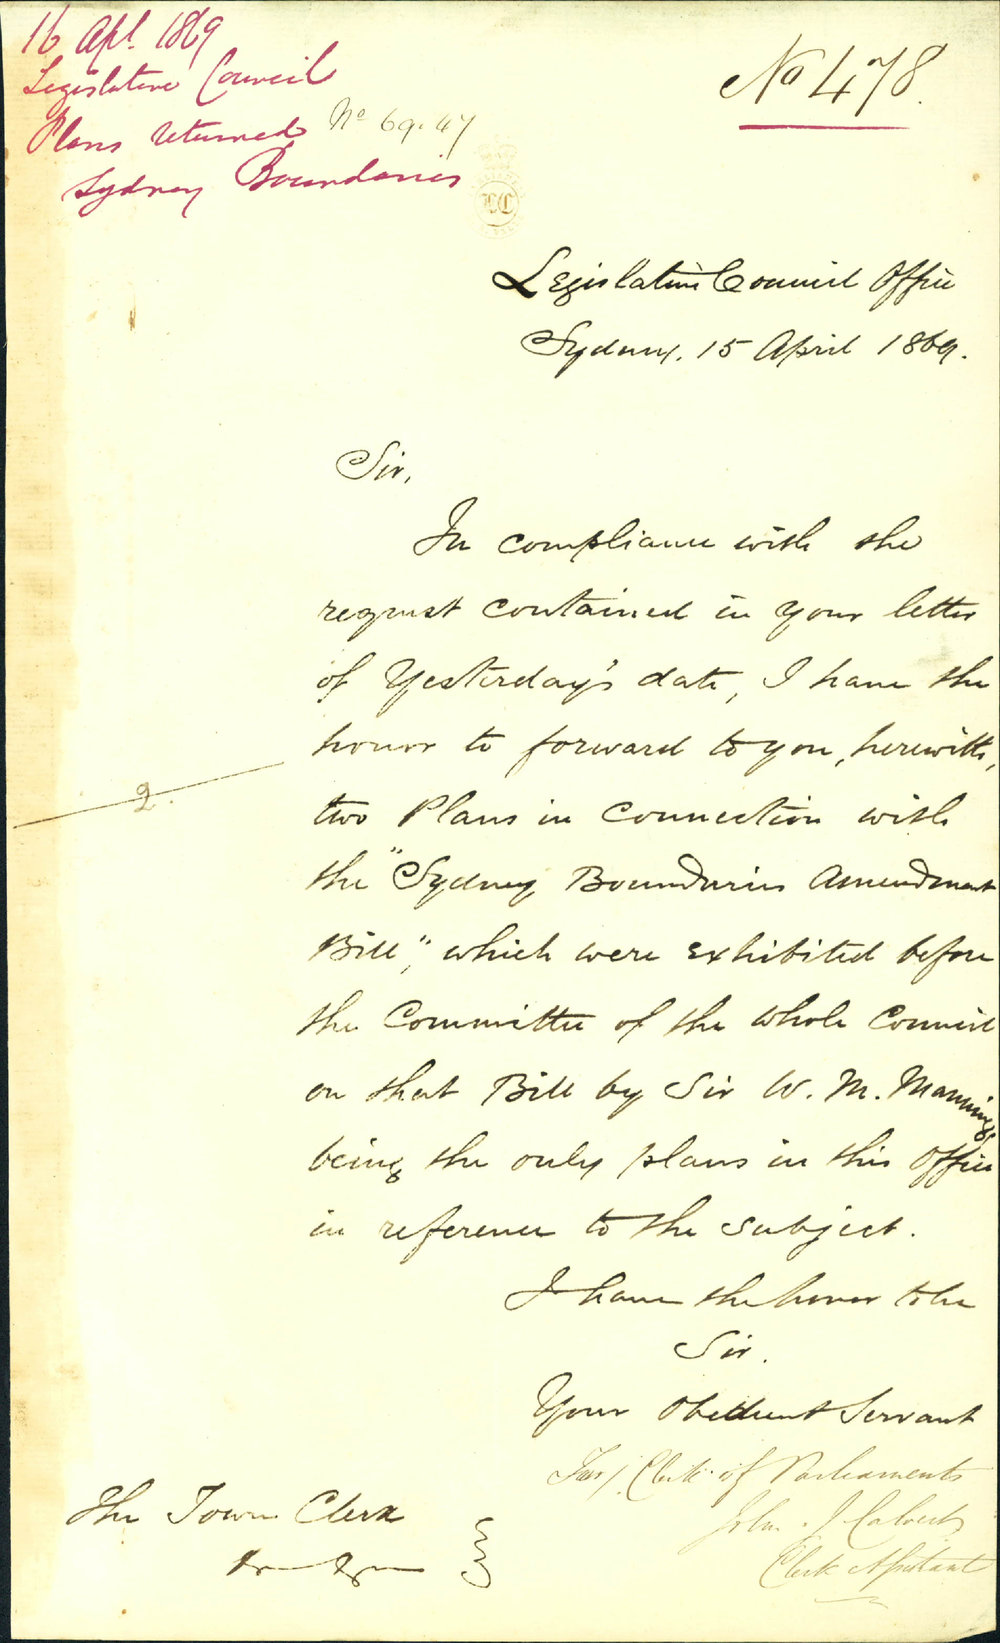 16 Apl. 1869
Legislative Council
Plans returned No 69.47
Sydney Boundaries
No 478.
LC
Legislative Council Office
Sydney. 15 April 1869.
Sir,
In compliance with the
request contained in your letter
of Yesterday's date, I have the
honor to forward to you, herewith,
two Plans in Connection with
the "Sydney Boundaries Amendment
Bill", which were exhibited before
the Committee of the whole Council
on that Bill by Sir W. M. Manning,
being the only plans in this Office
in reference to the subject.
2.
I have the honor to be
Sir.
Your Obedient Servant
For/. Clerk of Parliaments
John J Calvert
Clerk Assistant
The Town Clerk